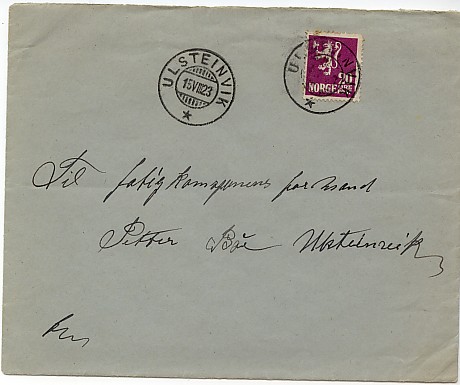 ULSTEINVIK
15VIII23
ULSTEINVIK
20
NORGE ØRE
Til fatigkommionens formand
Petter Bøe Ulsteinvik